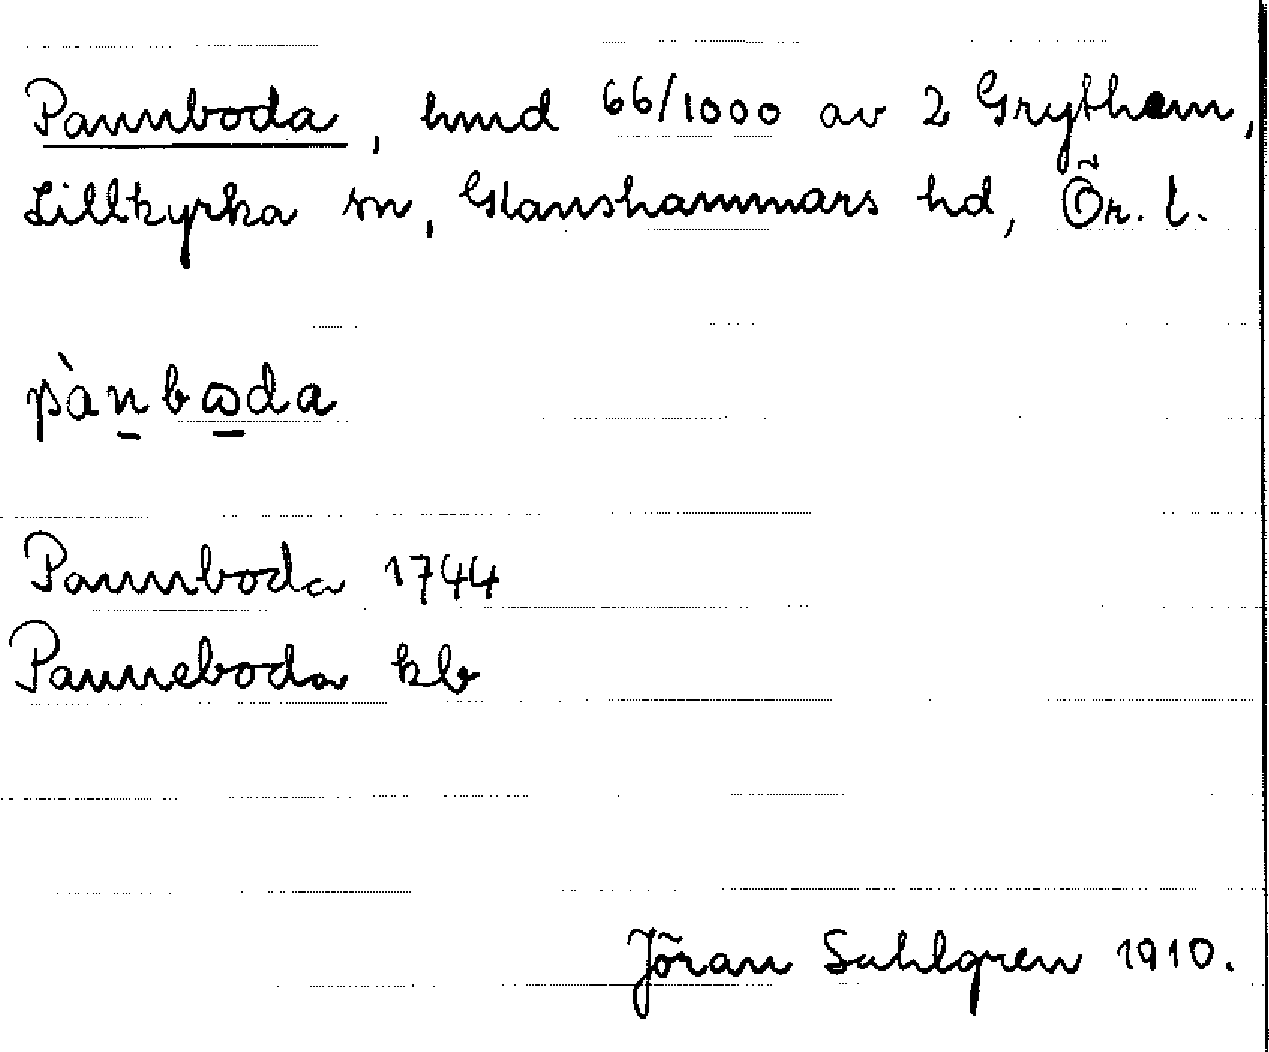 Pannboda, hmd 66/1000 av 2 Grythem,
Lillkyrka sn, Glanshammars hd, Ör. l.
pànbɷda
Pannboda 1744
Panneboda kb
Jöran Sahlgren 1910.